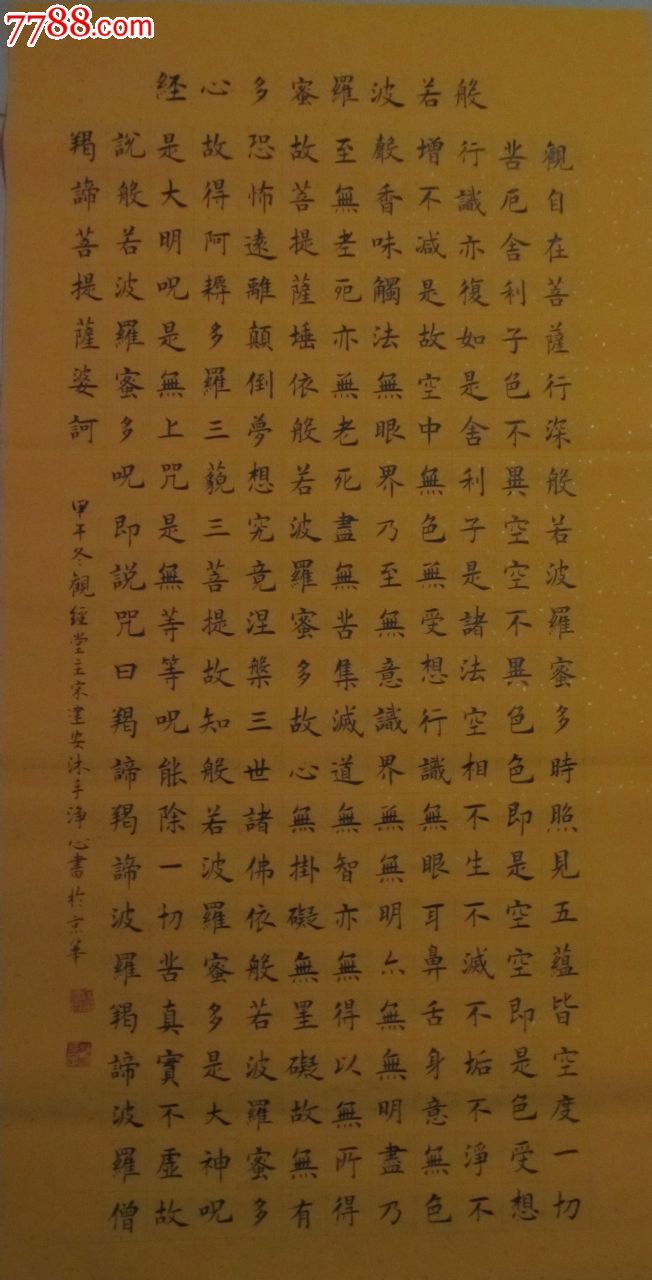 7788.com
般若波羅蜜多心經
觀自在菩薩行深般若波羅蜜多時照見五蘊皆空度一切
苦厄舍利子色不異空空不異色色即是空空即是色受想
行識亦復如是舍利子是諸法空相不生不滅不垢不淨不
增不減是故空中無色無受想行識無眼耳鼻舌身意無色
聲香味觸法無眼界乃至無意識界無無明亦無無明盡乃
至無老死亦無老死盡無苦集滅道無智亦無得以無所得
故菩提薩埵依般若波羅蜜多故心無掛礙無罣礙故無有
恐怖遠離顛倒夢想究竟涅槃三世諸佛依般若波羅蜜多
故得阿耨多羅三藐三菩提故知般若波羅蜜多是大神呪
是大明呪是無上咒是無等等呪能除一切苦真實不虛故
說般若波羅蜜多呪即說咒曰羯諦羯諦波羅羯諦波羅僧
羯諦菩提薩婆訶
甲午冬觀經堂主宋建安沐手淨心書於京華